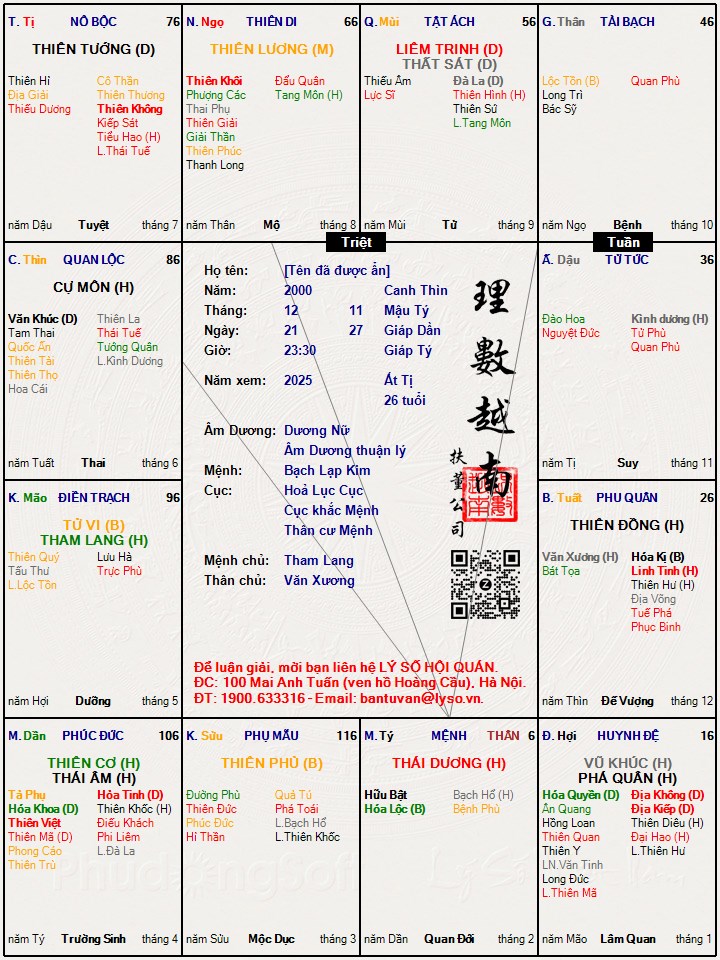 T. Tị NÔ BỘC 76
THIÊN TƯỚNG (D)
Thiên Hỉ Cô Thần
Địa Giải Thiên Thương
Thiếu Dương Thiên Không
Kiếp Sát
Tiểu Hao (H)
L.Thái Tuế
năm Dậu Tuyệt tháng 7
N. Ngọ THIÊN DI 66
THIÊN LƯƠNG (M)
Thiên Khôi Đẩu Quân
Phượng Các Tang Môn (H)
Thai Phụ
Thiên Giải
Giải Thần
Thiên Phúc
Thanh Long
năm Thân Mộ tháng 8
Q. Mùi TẬT ÁCH 56
LIÊM TRINH (D)
THẤT SÁT (D)
Thiếu Âm Đà La (D)
Lực Sĩ Thiên Hình (H)
Thiên Sứ
L.Tang Môn
năm Mùi Tử tháng 9
G. Thân TÀI BẠCH 46
Lộc Tồn (B) Quan Phủ
Long Trì
Bác Sỹ
năm Ngọ Bệnh tháng 10
Triệt
Tuần
C. Thìn QUAN LỘC 86
CỰ MÔN (H)
Văn Khúc (D) Thiên La
Tam Thai Thái Tuế
Quốc Ấn Tướng Quân
Thiên Tài L.Kình Dương
Thiên Thọ
Hoa Cái
năm Tuất Thai tháng 6
Họ tên: [Tên đã được ẩn]
Năm: 2000 Canh Thìn
Tháng: 12 11 Mậu Tý
Ngày: 21 27 Giáp Dần
Giờ: 23:30 Giáp Tý
Năm xem: 2025 Ất Tị
26 tuổi
Âm Dương: Dương Nữ
Âm Dương thuận lý
Mệnh: Bạch Lạp Kim
Cục: Hoả Lục Cục
Cục khắc Mệnh
Thân cư Mệnh
Mệnh chủ: Tham Lang
Thân chủ: Văn Xương
理數越南
扶董公司
Để luận giải, mời bạn liên hệ LÝ SỐ HỘI QUÁN.
ĐC: 100 Mai Anh Tuấn (ven hồ Hoàng Cầu), Hà Nội.
ĐT: 1900.633316 - Email: bantuvan@lyso.vn.
Ấ. Dậu TỬ TỨC 36
Đào Hoa Kình dương (H)
Nguyệt Đức Tử Phù
Quan Phủ
năm Tị Suy tháng 11
K. Mão ĐIỀN TRẠCH 96
TỬ VI (B)
THAM LANG (H)
Thiên Quý Lưu Hà
Tấu Thư Trực Phù
L.Lộc Tồn
năm Hợi Dưỡng tháng 5
B. Tuất PHU QUÂN 26
THIÊN ĐỒNG (H)
Văn Xương (H) Hóa Kị (B)
Bát Tọa Linh Tinh (H)
Thiên Hư (H)
Địa Võng
Tuế Phá
Phục Binh
năm Thìn Đế Vượng tháng 12
M. Dần PHÚC ĐỨC 106
THIÊN CƠ (H)
THÁI ÂM (H)
Tả Phụ Hỏa Tinh (D)
Hóa Khoa (D) Thiên Khốc (H)
Thiên Việt Điếu Khách
Thiên Mã (D) Phi Liêm
Phong Cáo L.Đà La
Thiên Trù
năm Tý Trường Sinh tháng 4
K. Sửu PHỤ MẪU 116
THIÊN PHỦ (B)
Đường Phù Quả Tú
Thiên Đức Phá Toái
Phúc Đức L.Bạch Hổ
Hỉ Thần L.Thiên Khốc
năm Sửu Mộc Dục tháng 3
M. Tý MỆNH THÂN 6
THÁI DƯƠNG (H)
Hữu Bật Bạch Hổ (H)
Hóa Lộc (B) Bệnh Phù
năm Dần Quan Đới tháng 2
Đ. Hợi HUYNH ĐỆ 16
VŨ KHÚC (H)
PHÁ QUÂN (H)
Hóa Quyền (D) Địa Không (D)
Ân Quang Địa Kiếp (D)
Hồng Loan Thiên Diêu (H)
Thiên Quan Đại Hao (H)
Thiên Y L.Thiên Hư
LN.Văn Tinh
Long Đức
L.Thiên Mã
năm Mão Lâm Quan tháng 1